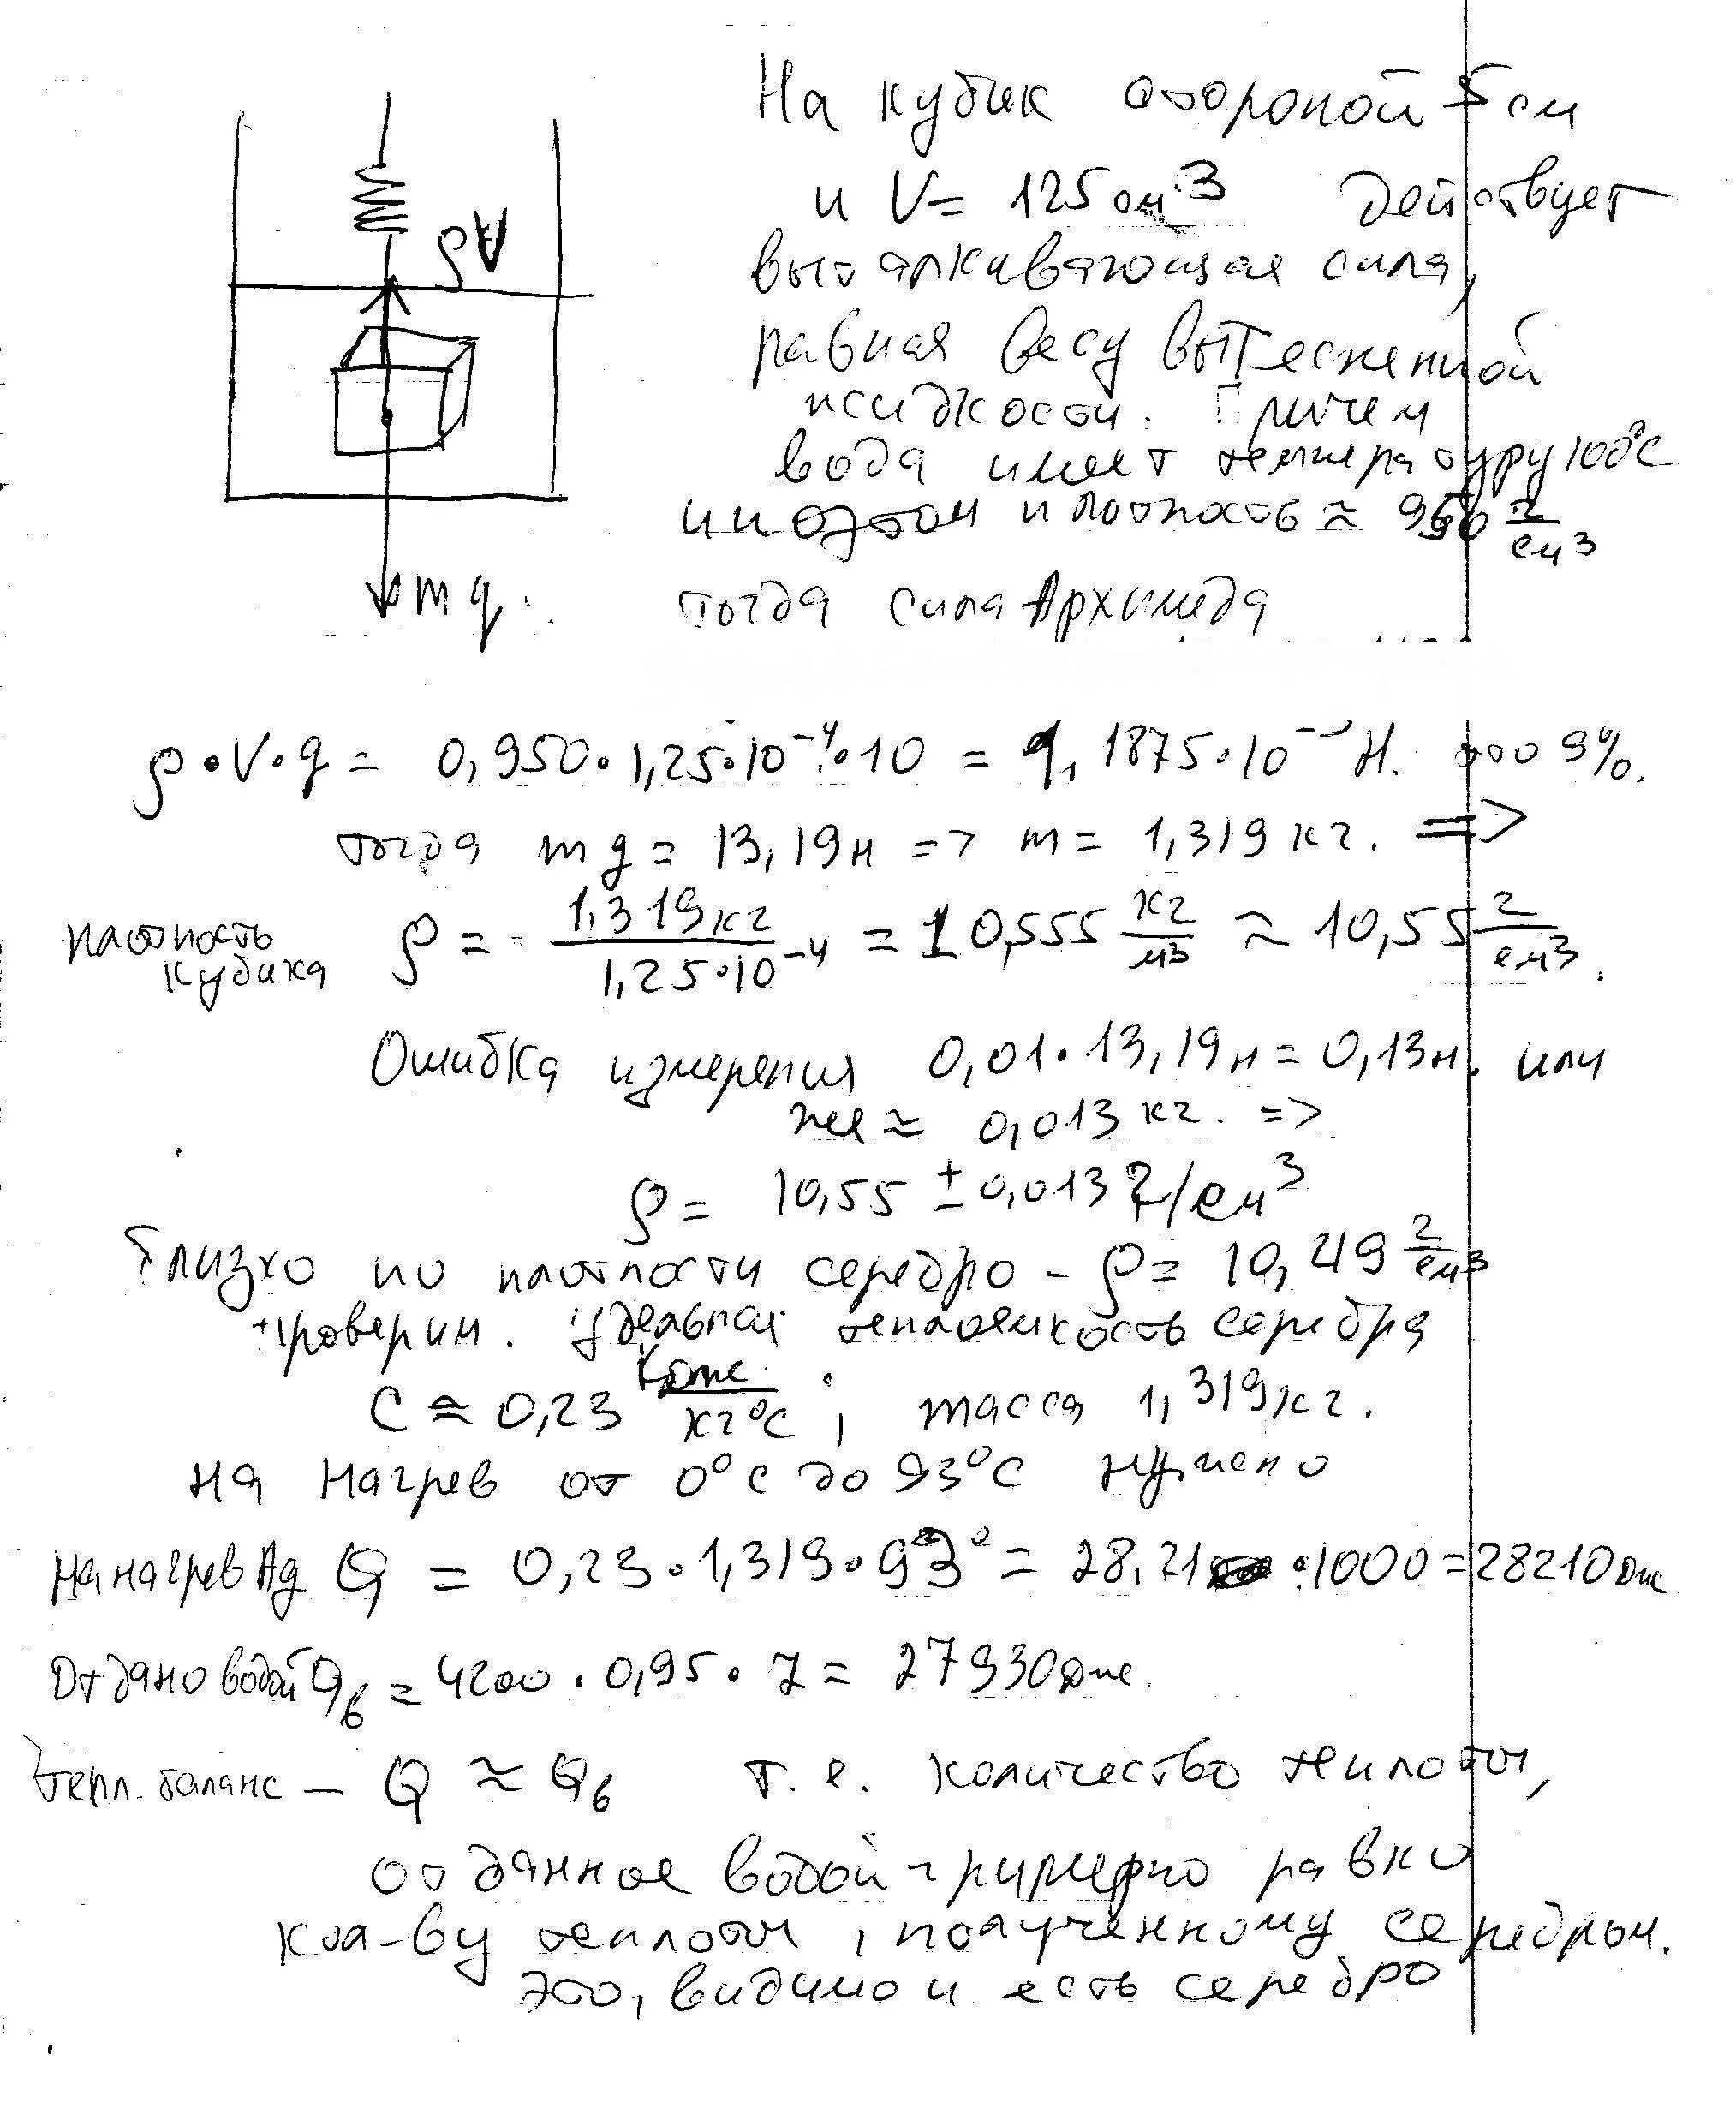 На кубик стороной 5 см
и V = 125 см³ действует
выталкивающая сила,
ρV
равная весу вытесненной
жидкости. Причем
вода имеет температуру 100°С
и плотность ≈ 950 г/см³
mg.
тогда сила Архимеда
ρ·V·g = 0,950·1,25·10⁻⁴·10 = 1,1875·10⁻³ Н. это 9%.
тогда mg = 13,19н => m = 1,319 кг. =>
плотность кубика ρ = 1,319кг / 1,25·10⁻⁴ = 10,555 кг/м³ ≈ 10,55 г/см³.
Ошибка измерения 0,01·13,19н = 0,13н. или
же ≈ 0,013 кг. =>
ρ = 10,55 ± 0,013 г/см³
Близко по плотности серебро - ρ = 10,49 г/см³
проверим. Удельная теплоемкость серебра
С ≈ 0,23 Кдж/кг°С ; масса 1,319кг.
на нагрев от 0°С до 93°С нужно
На нагрев Ag Q = 0,23·1,319·93° = 28,21 ·1000 = 28210дж
Отдано водой Qв = 4200·0,95·7 = 27930дж.
тепл. баланс — Q ≈ Qв т.е. количество теплоты,
отданное водой примерно равно
кол-ву теплоты, полученному серебром.
Это, видимо и есть серебро